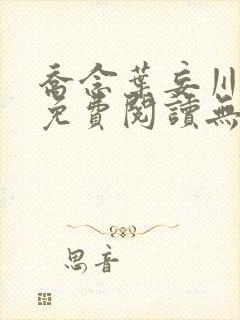 喬念葉妄川
免費閱讀無
思音